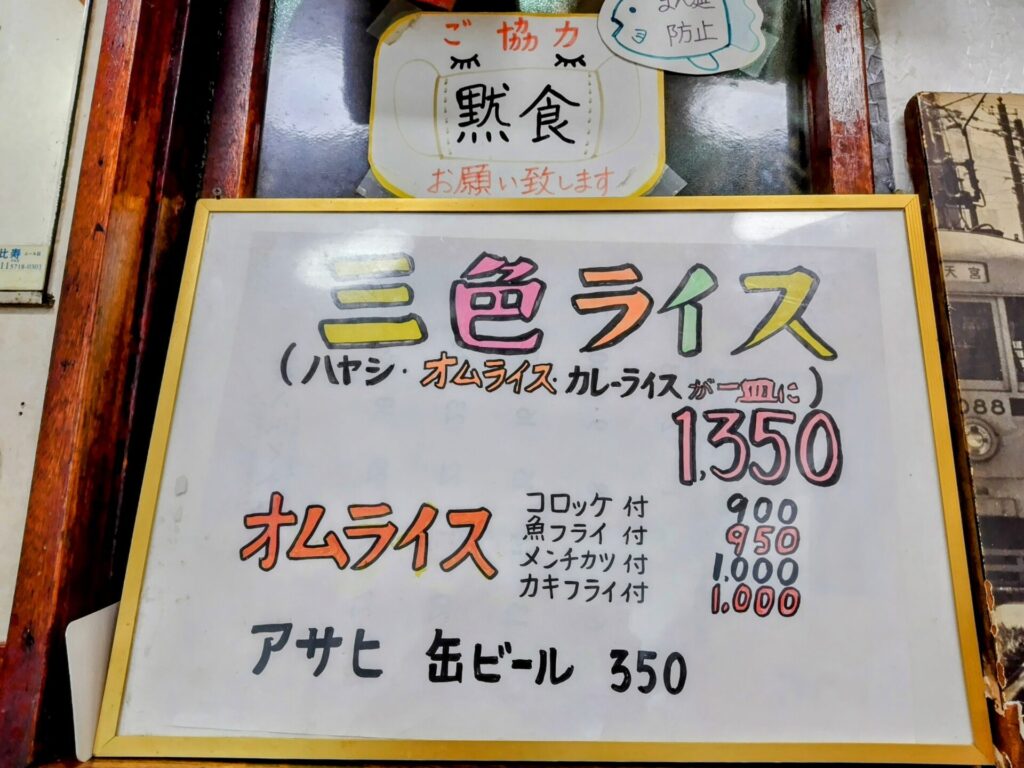 まん延
防止
ご協力
黙食
お願い致します
比寿
天宮
088
三色ライス
(ハヤシ・オムライス・カレーライスが一皿に)
1,350
オムライス
コロッケ付 900
魚フライ付 950
メンチカツ付 1.000
カキフライ付 1.000
アサヒ 缶ビール 350